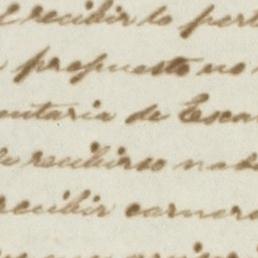 recibir lo per
propuesto no
entaria de Esca
recibirse nad
recibir carner